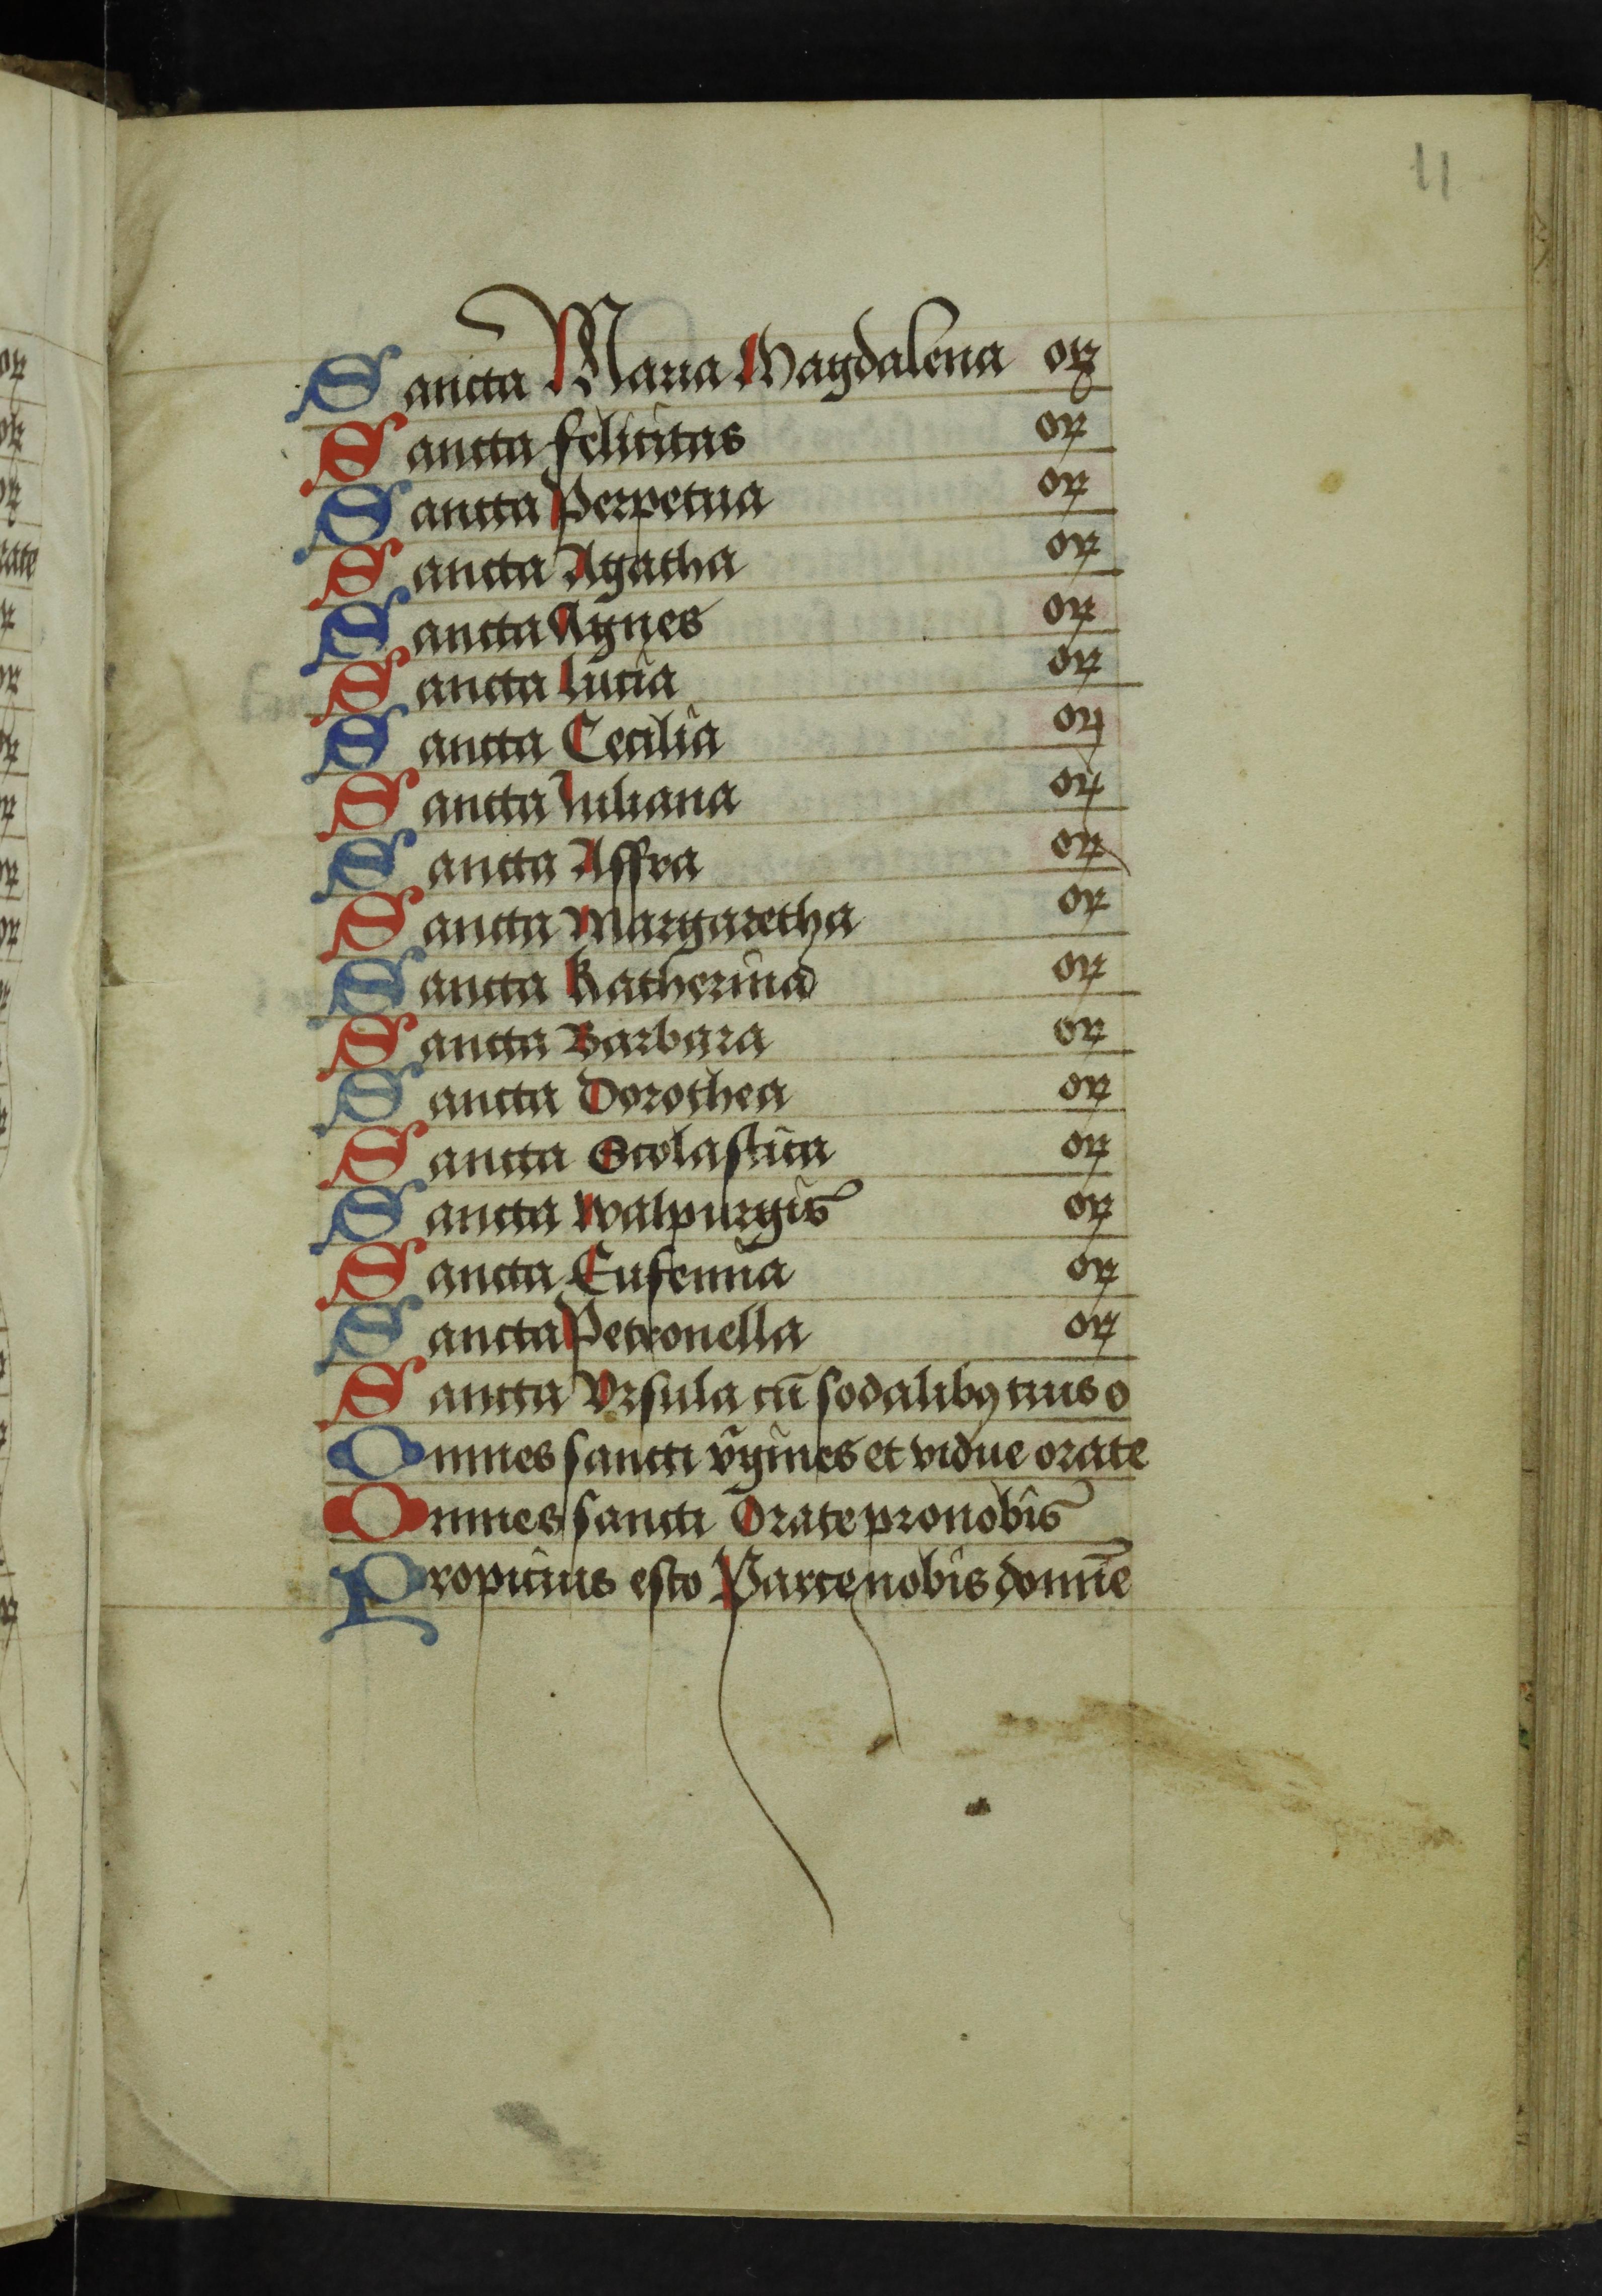 11
Sancta Maria Magdalena oꝝ
Sancta felicitas oꝝ
Sancta Perpetua oꝝ
Sancta Agatha oꝝ
Sancta Agnes oꝝ
Sancta Lucia oꝝ
Sancta Cecilia oꝝ
Sancta Iuliana oꝝ
Sancta Affra oꝝ
Sancta Margaretha oꝝ
Sancta Katherina oꝝ
Sancta Barbara oꝝ
Sancta Dorothea oꝝ
Sancta Scolastica oꝝ
Sancta Walpurgis oꝝ
Sancta Eufemia oꝝ
Sancta Petronella oꝝ
Sancta Vrsula cū sodalibꝰ tuis o
Omnes sancti v̄gines et vidue orate
Omnes sancti Orate pro nobis
Propicius esto Parce nobis domīe